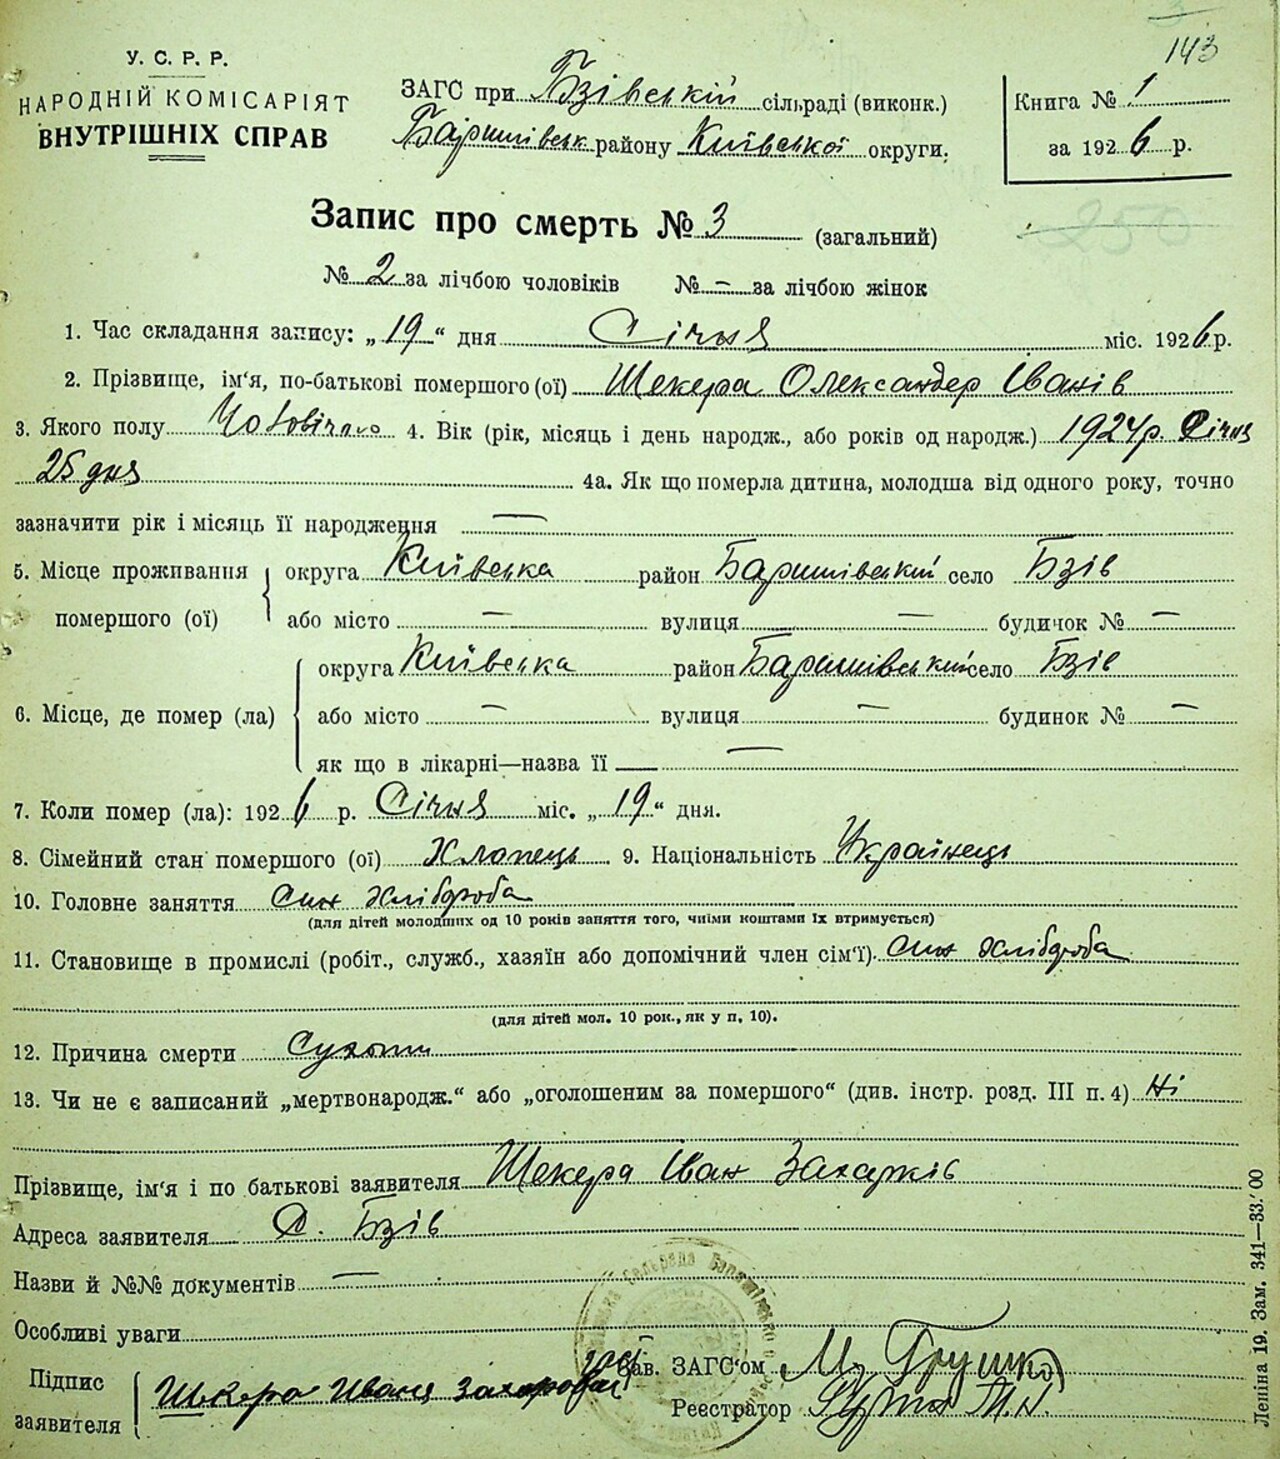 143
У. С. Р. Р.
НАРОДНІЙ КОМІСАРІЯТ
ВНУТРІШНІХ СПРАВ
ЗАГС при Бзівській сільраді (виконк.)
Баришівськ району Київської округи.
Книга № 1
за 1926 р.
Запис про смерть № 3 (загальний)
250
№ 2 за лічбою чоловіків № — за лічбою жінок
1. Час складання запису: „19“ дня Січня міс. 1926 р.
2. Прізвище, ім'я, по-батькові помершого (ої) Шекера Олександер Іванів
3. Якого полу 4. Вік (рік, місяць і день народж., або років од народж.) 1924 р. Січня
25 дня 4а. Як що померла дитина, молодша від одного року, точно
зазначити рік і місяць її народження —
5. Місце проживання помершого (ої) округа Київська район Баришівський село Бзів
або місто — вулиця — будинок № —
6. Місце, де помер (ла) округа Київська район Баришівський село Бзів
або місто — вулиця — будинок № —
як що в лікарні—назва її —
7. Коли помер (ла): 1926 р. Січня міс. „19“ дня.
8. Сімейний стан помершого (ої) Хлопець 9. Національність Українець
10. Головне заняття Син хлібороба
(для дітей молодших од 10 років заняття того, чиїми коштами їх втримується)
11. Становище в промислі (робіт., служб., хазяїн або допомічний член сім'ї). Син хлібороба
(для дітей мол. 10 рок., як у п, 10).
12. Причина смерти Сухоти
13. Чи не є записаний „мертвонародж.“ або „оголошеним за помершого“ (див. інстр. розд. III п. 4) Ні
Прізвище, ім'я і по батькові заявителя Шекера Іван Захарків
Адреса заявителя С. Бзів
Назви й №№ документів —
Особливі уваги
Підпис заявителя Шекера Иван
Зав. ЗАГС'ом М. Грушко
Реєстратор
Леніна 19. Зам. 341—33.'00